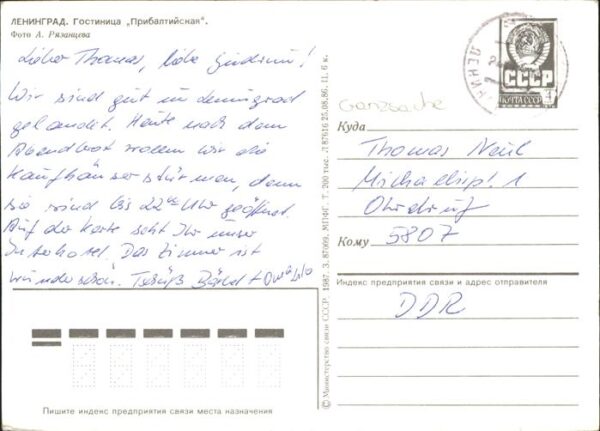 ЛЕНИНГРАД. Гостиница „Прибалтийская".
Фото А. Рязанцева
Lieber Thomas, liebe
Wir sind gut in Leningrad
gelandet. Heute nach dem
Abendbrot wollen wir die
Kaufhäuser stürmen, denn
sie sind bis 22 Uhr geöffnet.
Auf der Karte seht Ihr unser
Interhotel. Das Zimmer ist
wunderschön. Tschüß Bärbel +
Пишите индекс предприятия связи места назначения
© Министерство связи СССР. 1987. З. 87009. МПФГ. Т. 200 тыс. Л 87616 25.08.86. Ц. 6 к.
СССР
ПОЧТА СССР
4
Ganzsache
Куда
Thomas
Michaelispl. 1
Ohrdruf
Кому
5807
Индекс предприятия связи и адрес отправителя
DDR